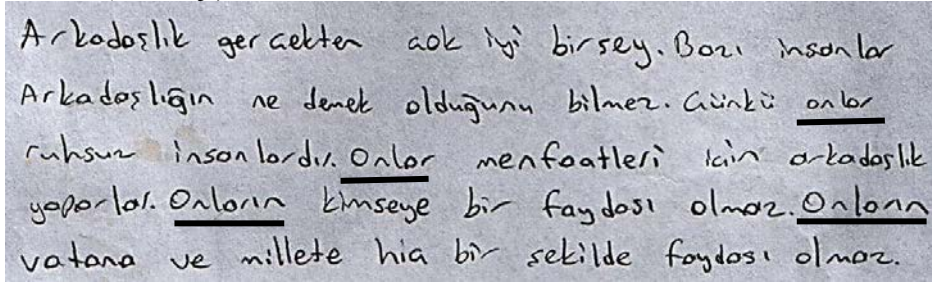 Arkadaşlık gerçekten çok iyi birşey. Bazı insanlar
Arkadaşlığın ne demek olduğunu bilmez. Çünkü onlar
ruhsuz insanlardır. Onlar menfaatleri için arkadaşlık
yaparlar. Onların kimseye bir faydası olmaz. Onların
vatana ve millete hiç bir şekilde faydası olmaz.